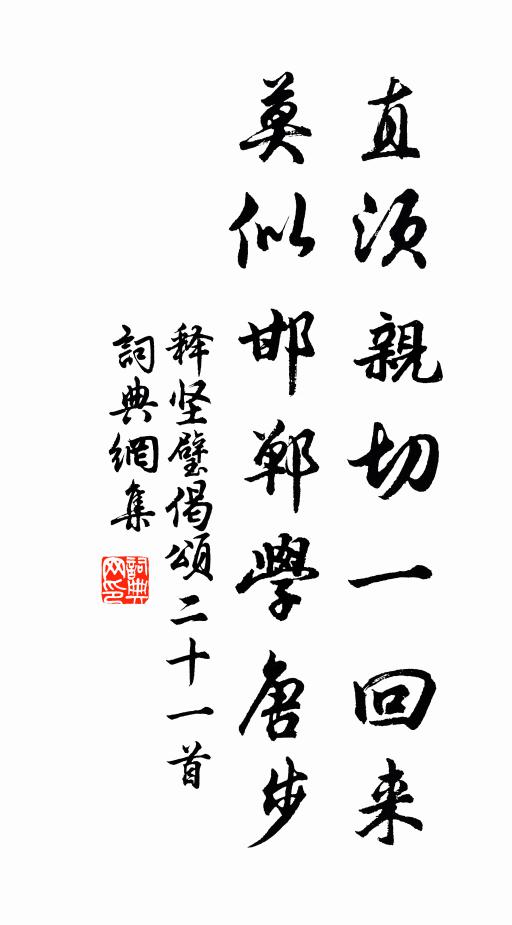 直须親切一回来
莫似邯郸學唐步
释坚璧偈頌二十一首
詞典網集
詞典
网印